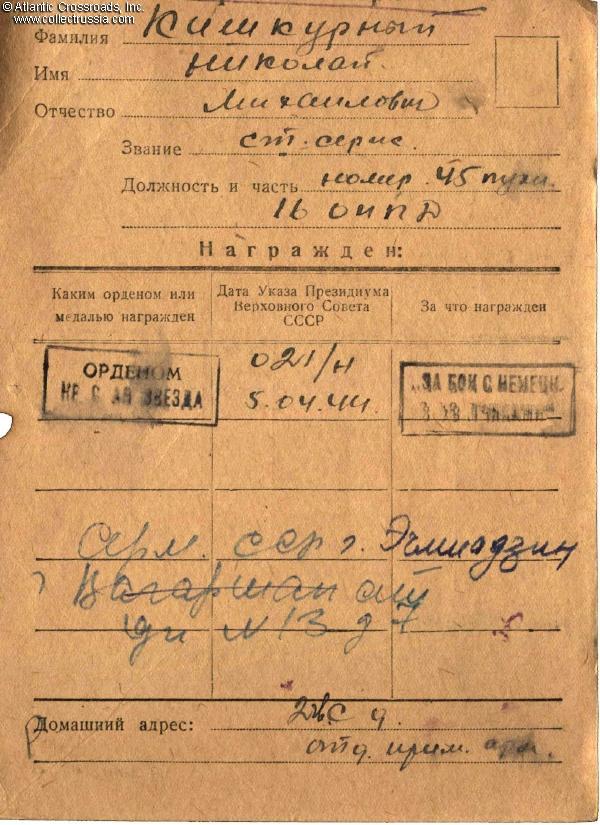 © Atlantic Crossroads, Inc.
www.collectrussia.com
Фамилия Кишкурный
Имя Николай
Отчество Михайлович
Звание ст. серж.
Должность и часть номер 45 пуш.
16 ОИПД
Награжден:
Каким орденом или медалью награжден
Дата Указа Президиума Верховного Совета СССР
За что награжден
ОРДЕНОМ
КРАСНАЯ ЗВЕЗДА
021/н
5.04.44.
„ЗА БОИ С НЕМЕЦК.
Арм. ССР г. Эчмиадзин
Вагаршапат
N 13 д 7
Домашний адрес:
отд.